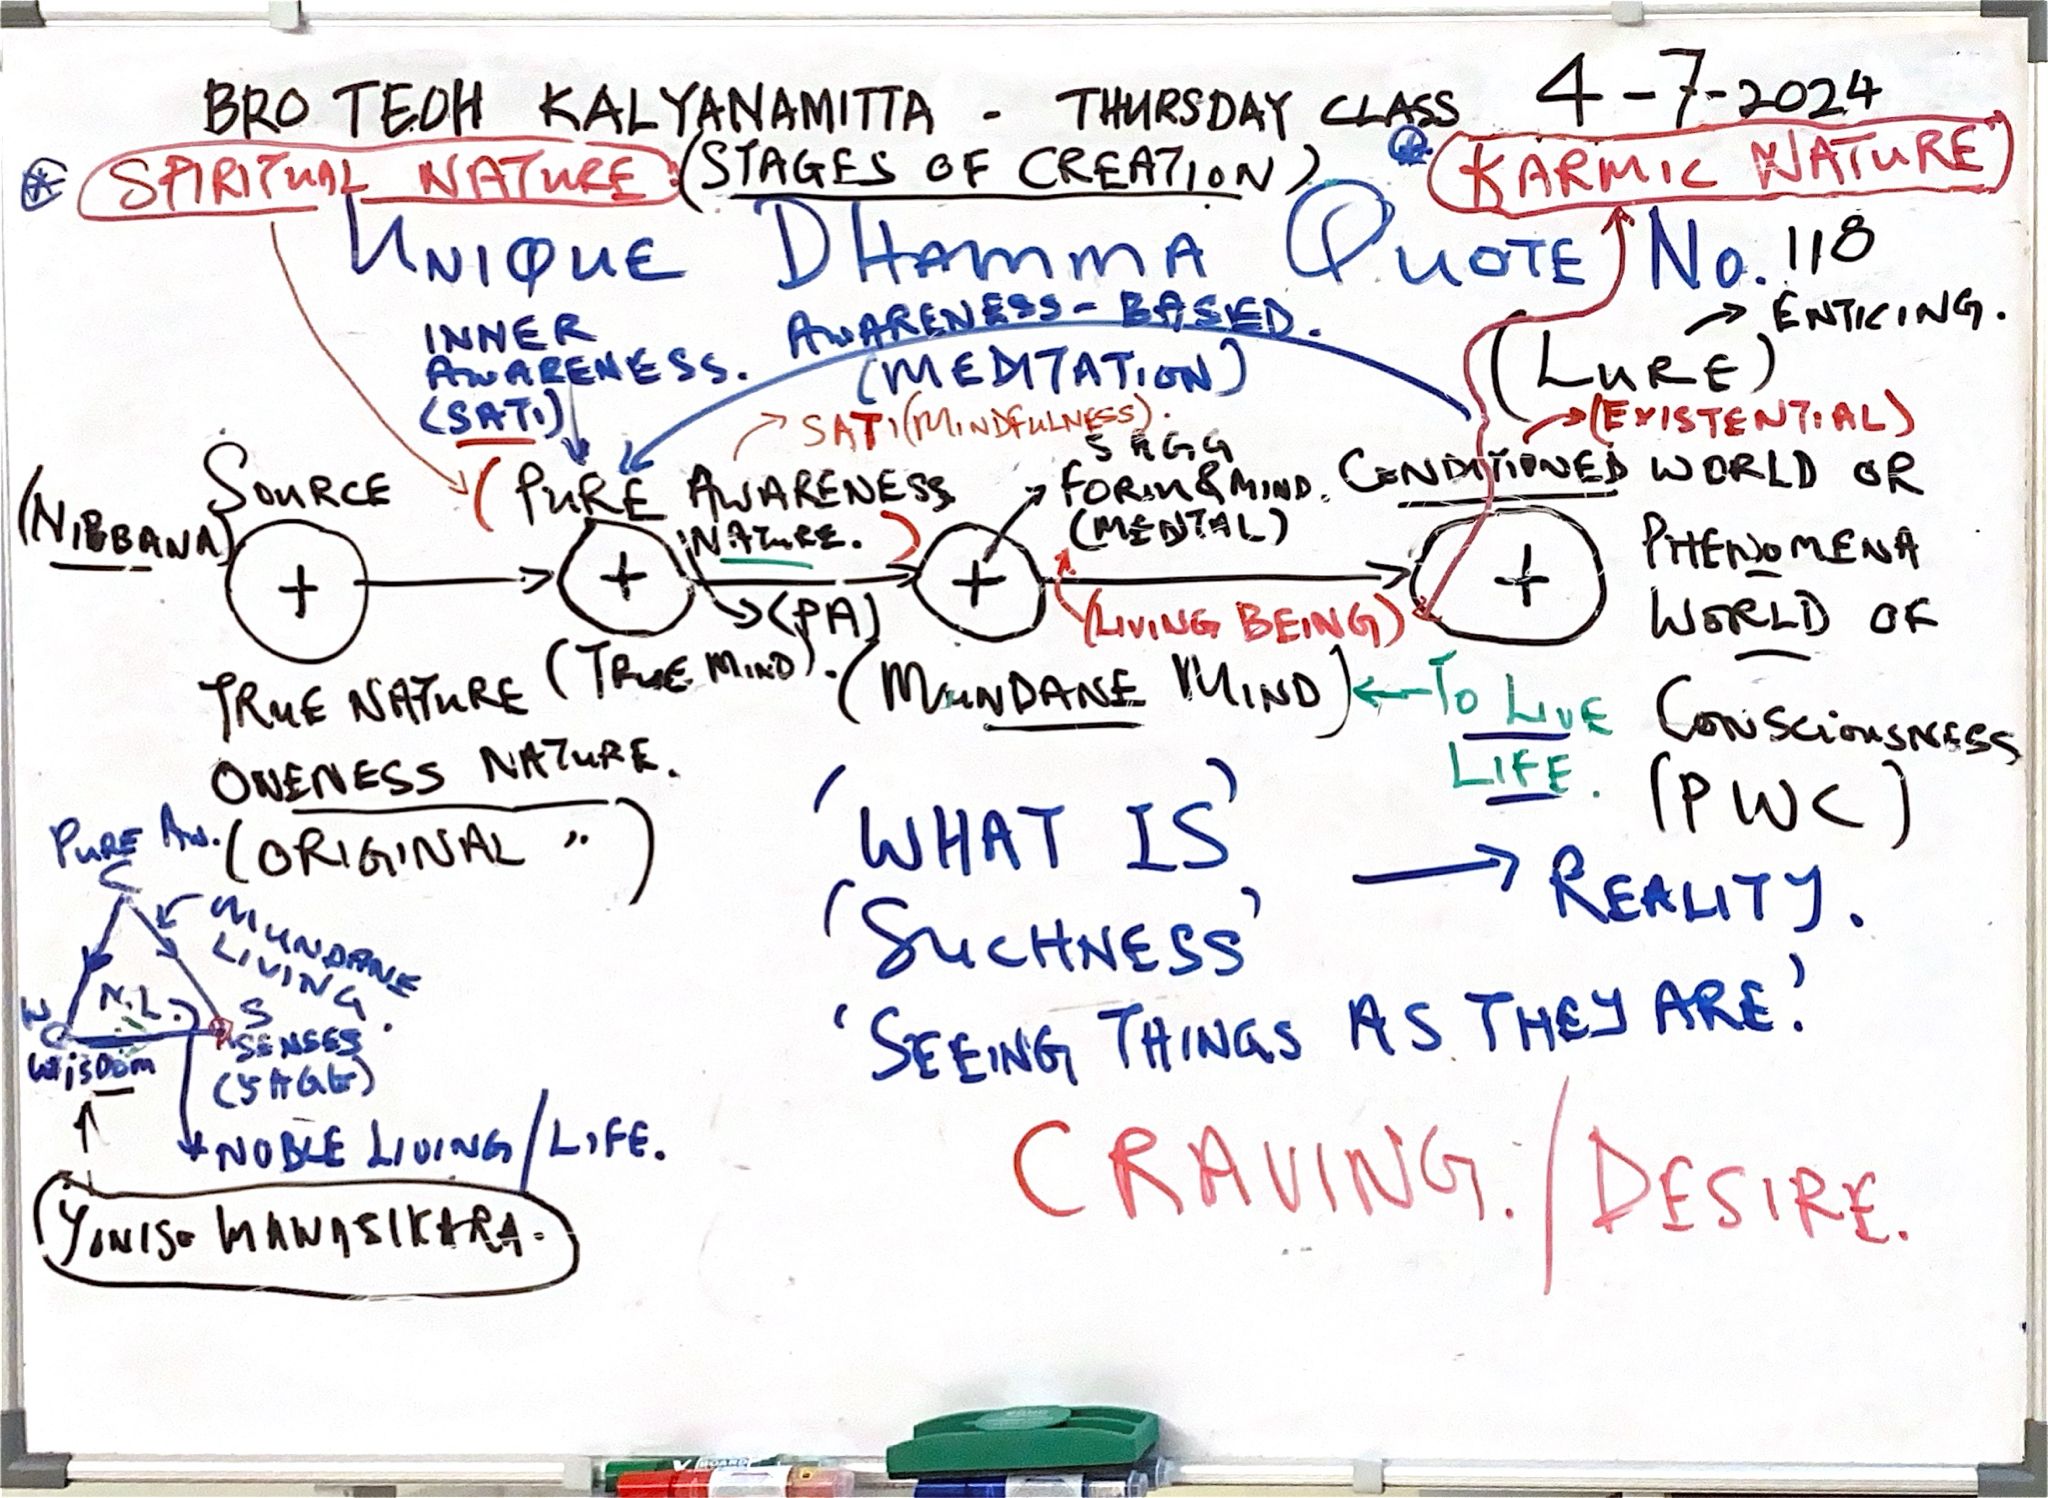 BRO TEOH KALYANAMITTA - THURSDAY CLASS 4-7-2024
SPIRITUAL NATURE : (STAGES OF CREATION) KARMIC NATURE
UNIQUE DHAMMA QUOTE No. 118
INNER AWARENESS. (SATI)
AWARENESS-BASED. (MEDITATION)
(LURE) → ENTICING.
(EXISTENTIAL)
SATI (MINDFULNESS).
(NIBBANA)
SOURCE
(PURE AWARENESS NATURE.)
(PA)
5 AGG
FORM & MIND.
(MENTAL)
CONDITIONED WORLD OR
PHENOMENA
WORLD OF
CONSCIOUSNESS
(PWC)
+ + + +
(LIVING BEING)
TRUE NATURE
ONENESS NATURE.
(ORIGINAL ")
(TRUE MIND).
(MUNDANE MIND)
← TO LIVE
LIFE.
'WHAT IS'
'SUCHNESS' → REALITY.
'SEEING THINGS AS THEY ARE.'
CRAVING. / DESIRE.
PURE AW.
C
MUNDANE
LIVING.
N.L.
W
WISDOM
S
SENSES
(5 AGG)
NOBLE LIVING / LIFE.
YONISO MANASIKARA.